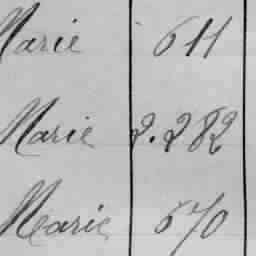 Marie 611
Marie 2.282
Marie 670